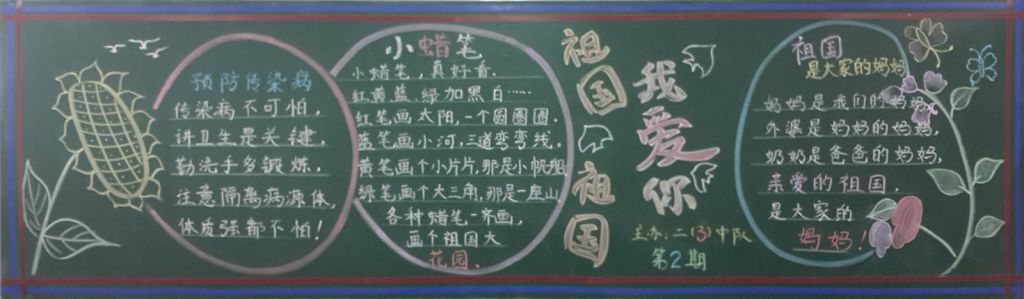 预防传染病
传染病不可怕,
讲卫生是关键,
勤洗手多锻炼,
注意隔离病源体,
体质强都不怕!
小蜡笔
小蜡笔,真好看.
红黄蓝、绿加黑白……
红笔画太阳,一个圆圈圈.
蓝笔画小河,三道弯弯线.
黄笔画个小片片,那是小帆船
绿笔画个大三角,那是一座山
各种蜡笔一齐画,
画个祖国大
花园.
祖国
祖国
我爱你
主办:二(3)中队
第2期
祖国
是大家的妈妈
妈妈是我们的妈妈,
外婆是妈妈的妈妈,
奶奶是爸爸的妈妈,
亲爱的祖国,
是大家的
妈妈!